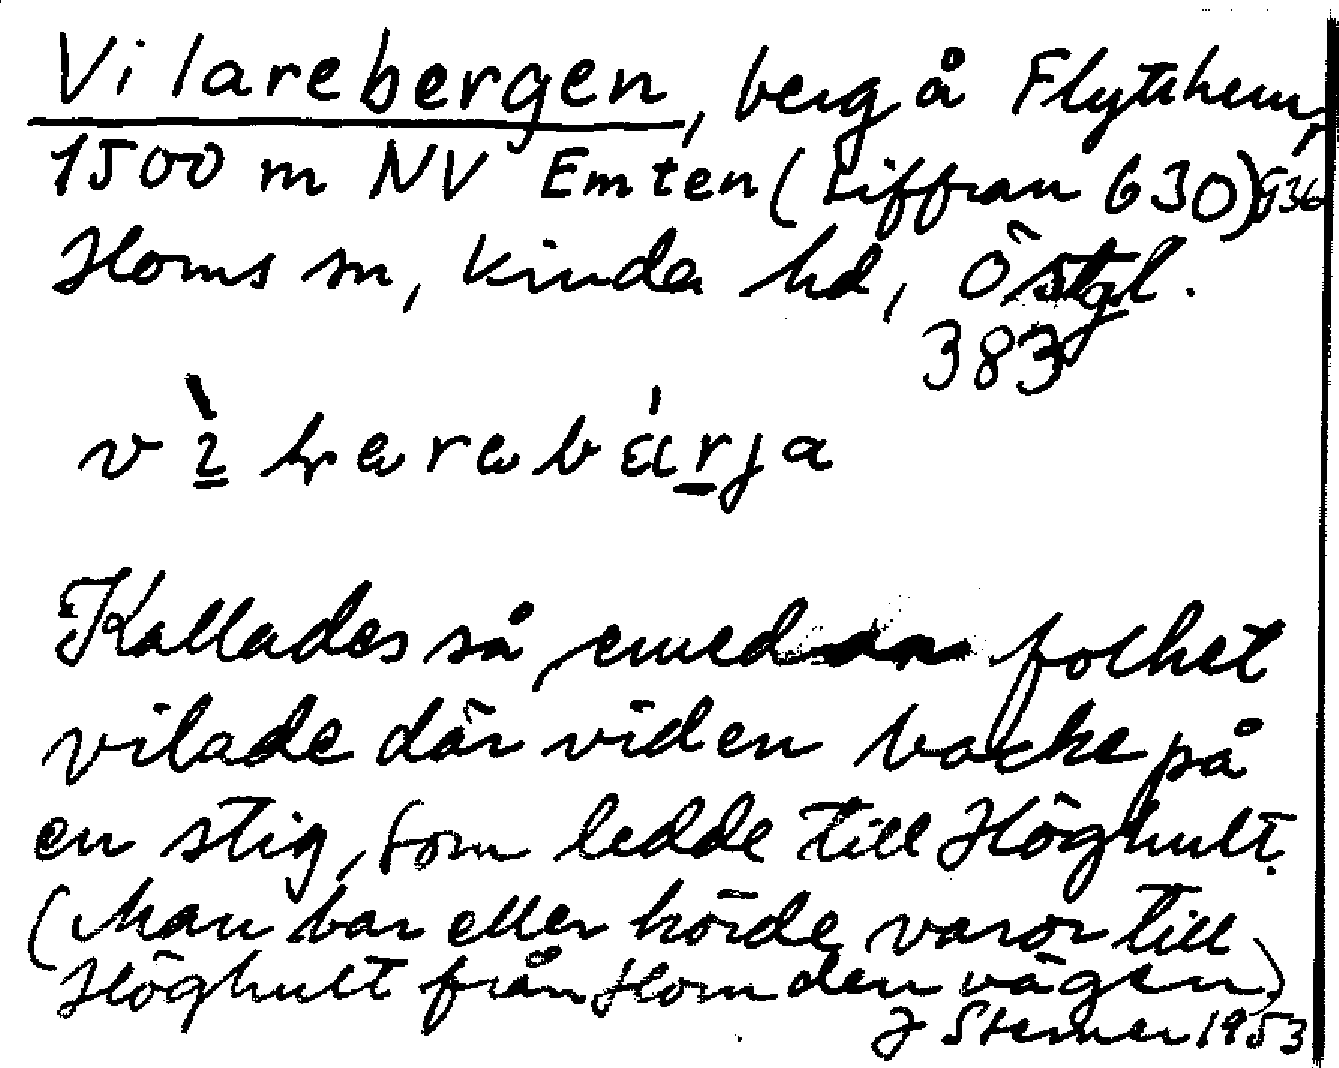 Vilarebergen, berg å Flythem,
1500 m NV Emten (siffran 630) G36
Homs sn, Kinda hd, Östgl.
383
Kallades så, emedan folket
vilade där vid en backe på
en stig, som ledde till Höghult.
(Man bar eller körde varor till
Höghult från Hom den vägen)
J Sterner 1953